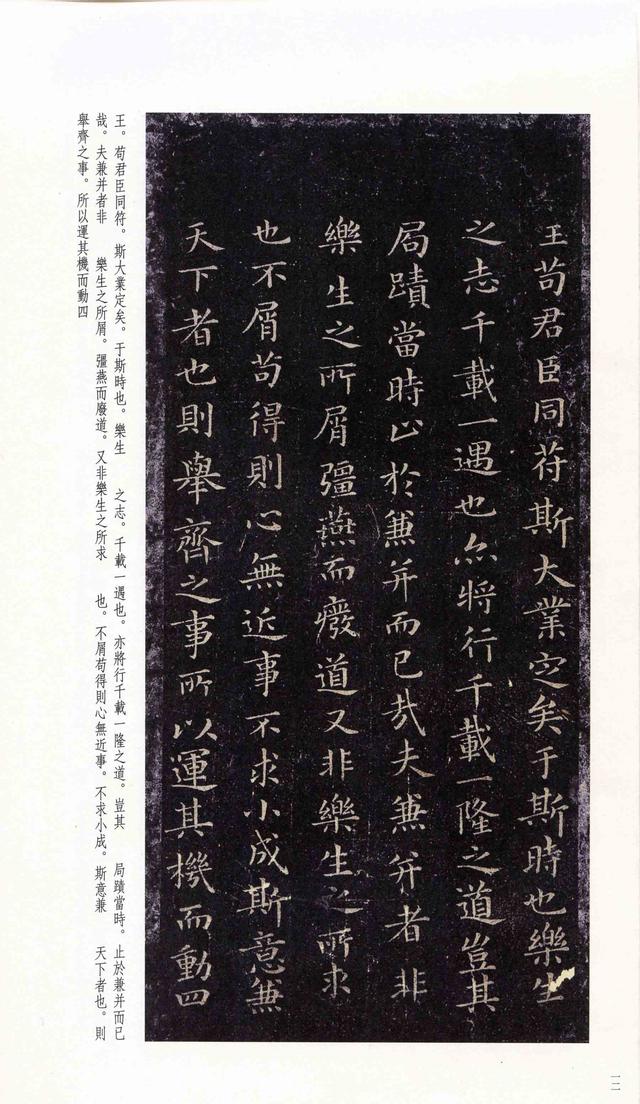 王苟君臣同苻斯大業定矣于斯時也樂生
之志千載一遇也亦將行千載一隆之道豈其
局蹟當時止於兼并而已哉夫兼并者非
樂生之所屑彊燕而癈道又非樂生之所求
也不屑苟得則心無近事不求小成斯意兼
天下者也則舉齊之事所以運其機而動四
王。苟君臣同符。斯大業定矣。于斯時也。樂生　之志。千載一遇也。亦將行千載一隆之道。豈其　局蹟當時。止於兼并而已
哉。夫兼并者非　樂生之所屑。彊燕而廢道。又非樂生之所求　也。不屑苟得則心無近事。不求小成。斯意兼　天下者也。則
舉齊之事。所以運其機而動四
一二